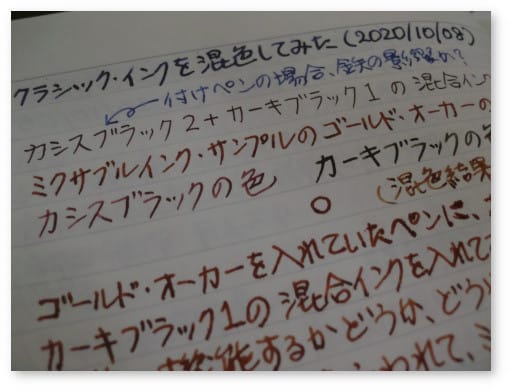 クラシック・インクを混色してみた(2020/10/08)
付けペンの場合、鉄の影響か?
カシスブラック2+カーキブラック1の混合インク
ミクサブルインク・サンプルのゴールド・オーカーの
カシスブラックの色 カーキブラックの色
(混色結果
ゴールド・オーカーを入れていたペンに、
カーキブラック1の混合インクを入れて
機能するかどうか、どう
われて、